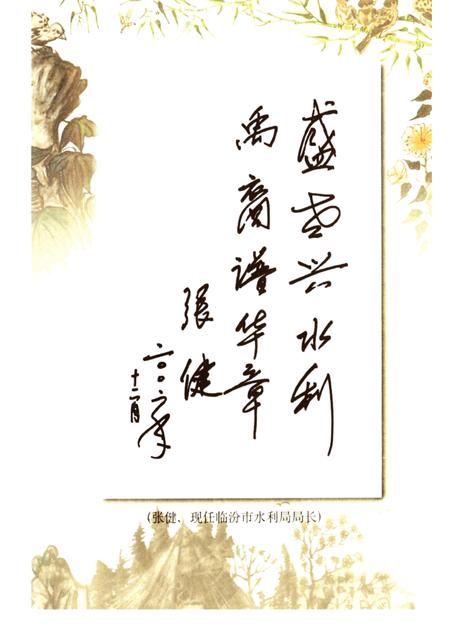 盛世兴水利
禹裔谱华章
张健
二〇〇六年
十二月
(张健，现任临汾市水利局局长)